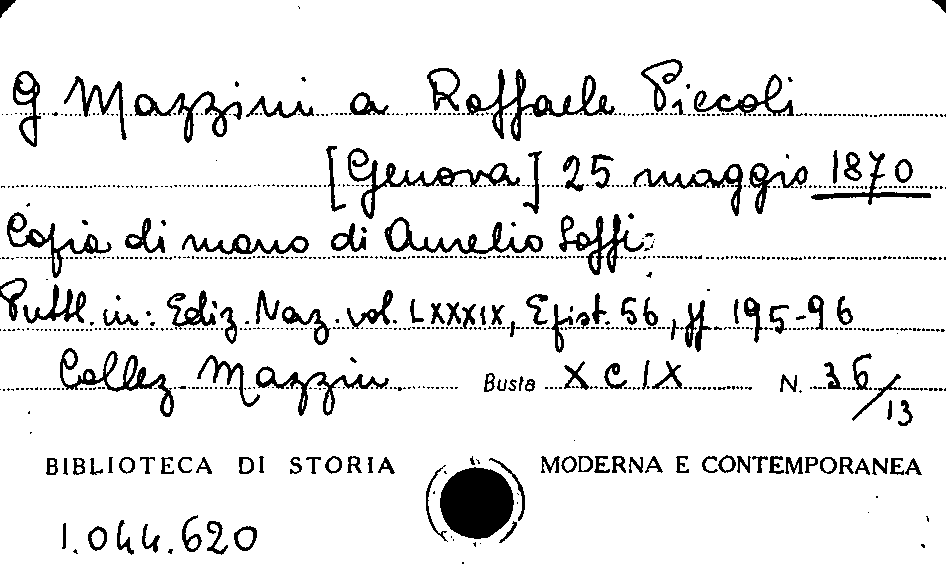 G. Mazzini a Raffaele Piccoli
[Genova] 25 maggio 1870
Copia di mano di Aurelio Saffi.
Pubbl. in: Ediz. Naz. vol. LXXXIX, Epist. 56, pp 195-96
Collez. Mazzin. Busta XCIX N. 36/13
BIBLIOTECA DI STORIA MODERNA E CONTEMPORANEA
1.044.620